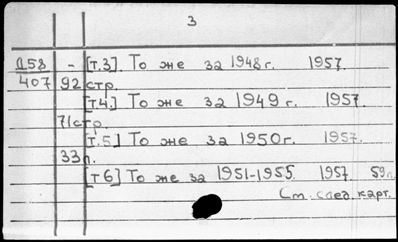 3
Д58 - [т.3]. То же за 1948 г. 1957.
407 92 стр.
[т4.] То же за 1949 г. 1957.
71 стр.
[т.5] То же за 1950 г. 1957.
33 л.
[т6] То же за 1951-1955. 1957. 59 л.
См. след. карт.